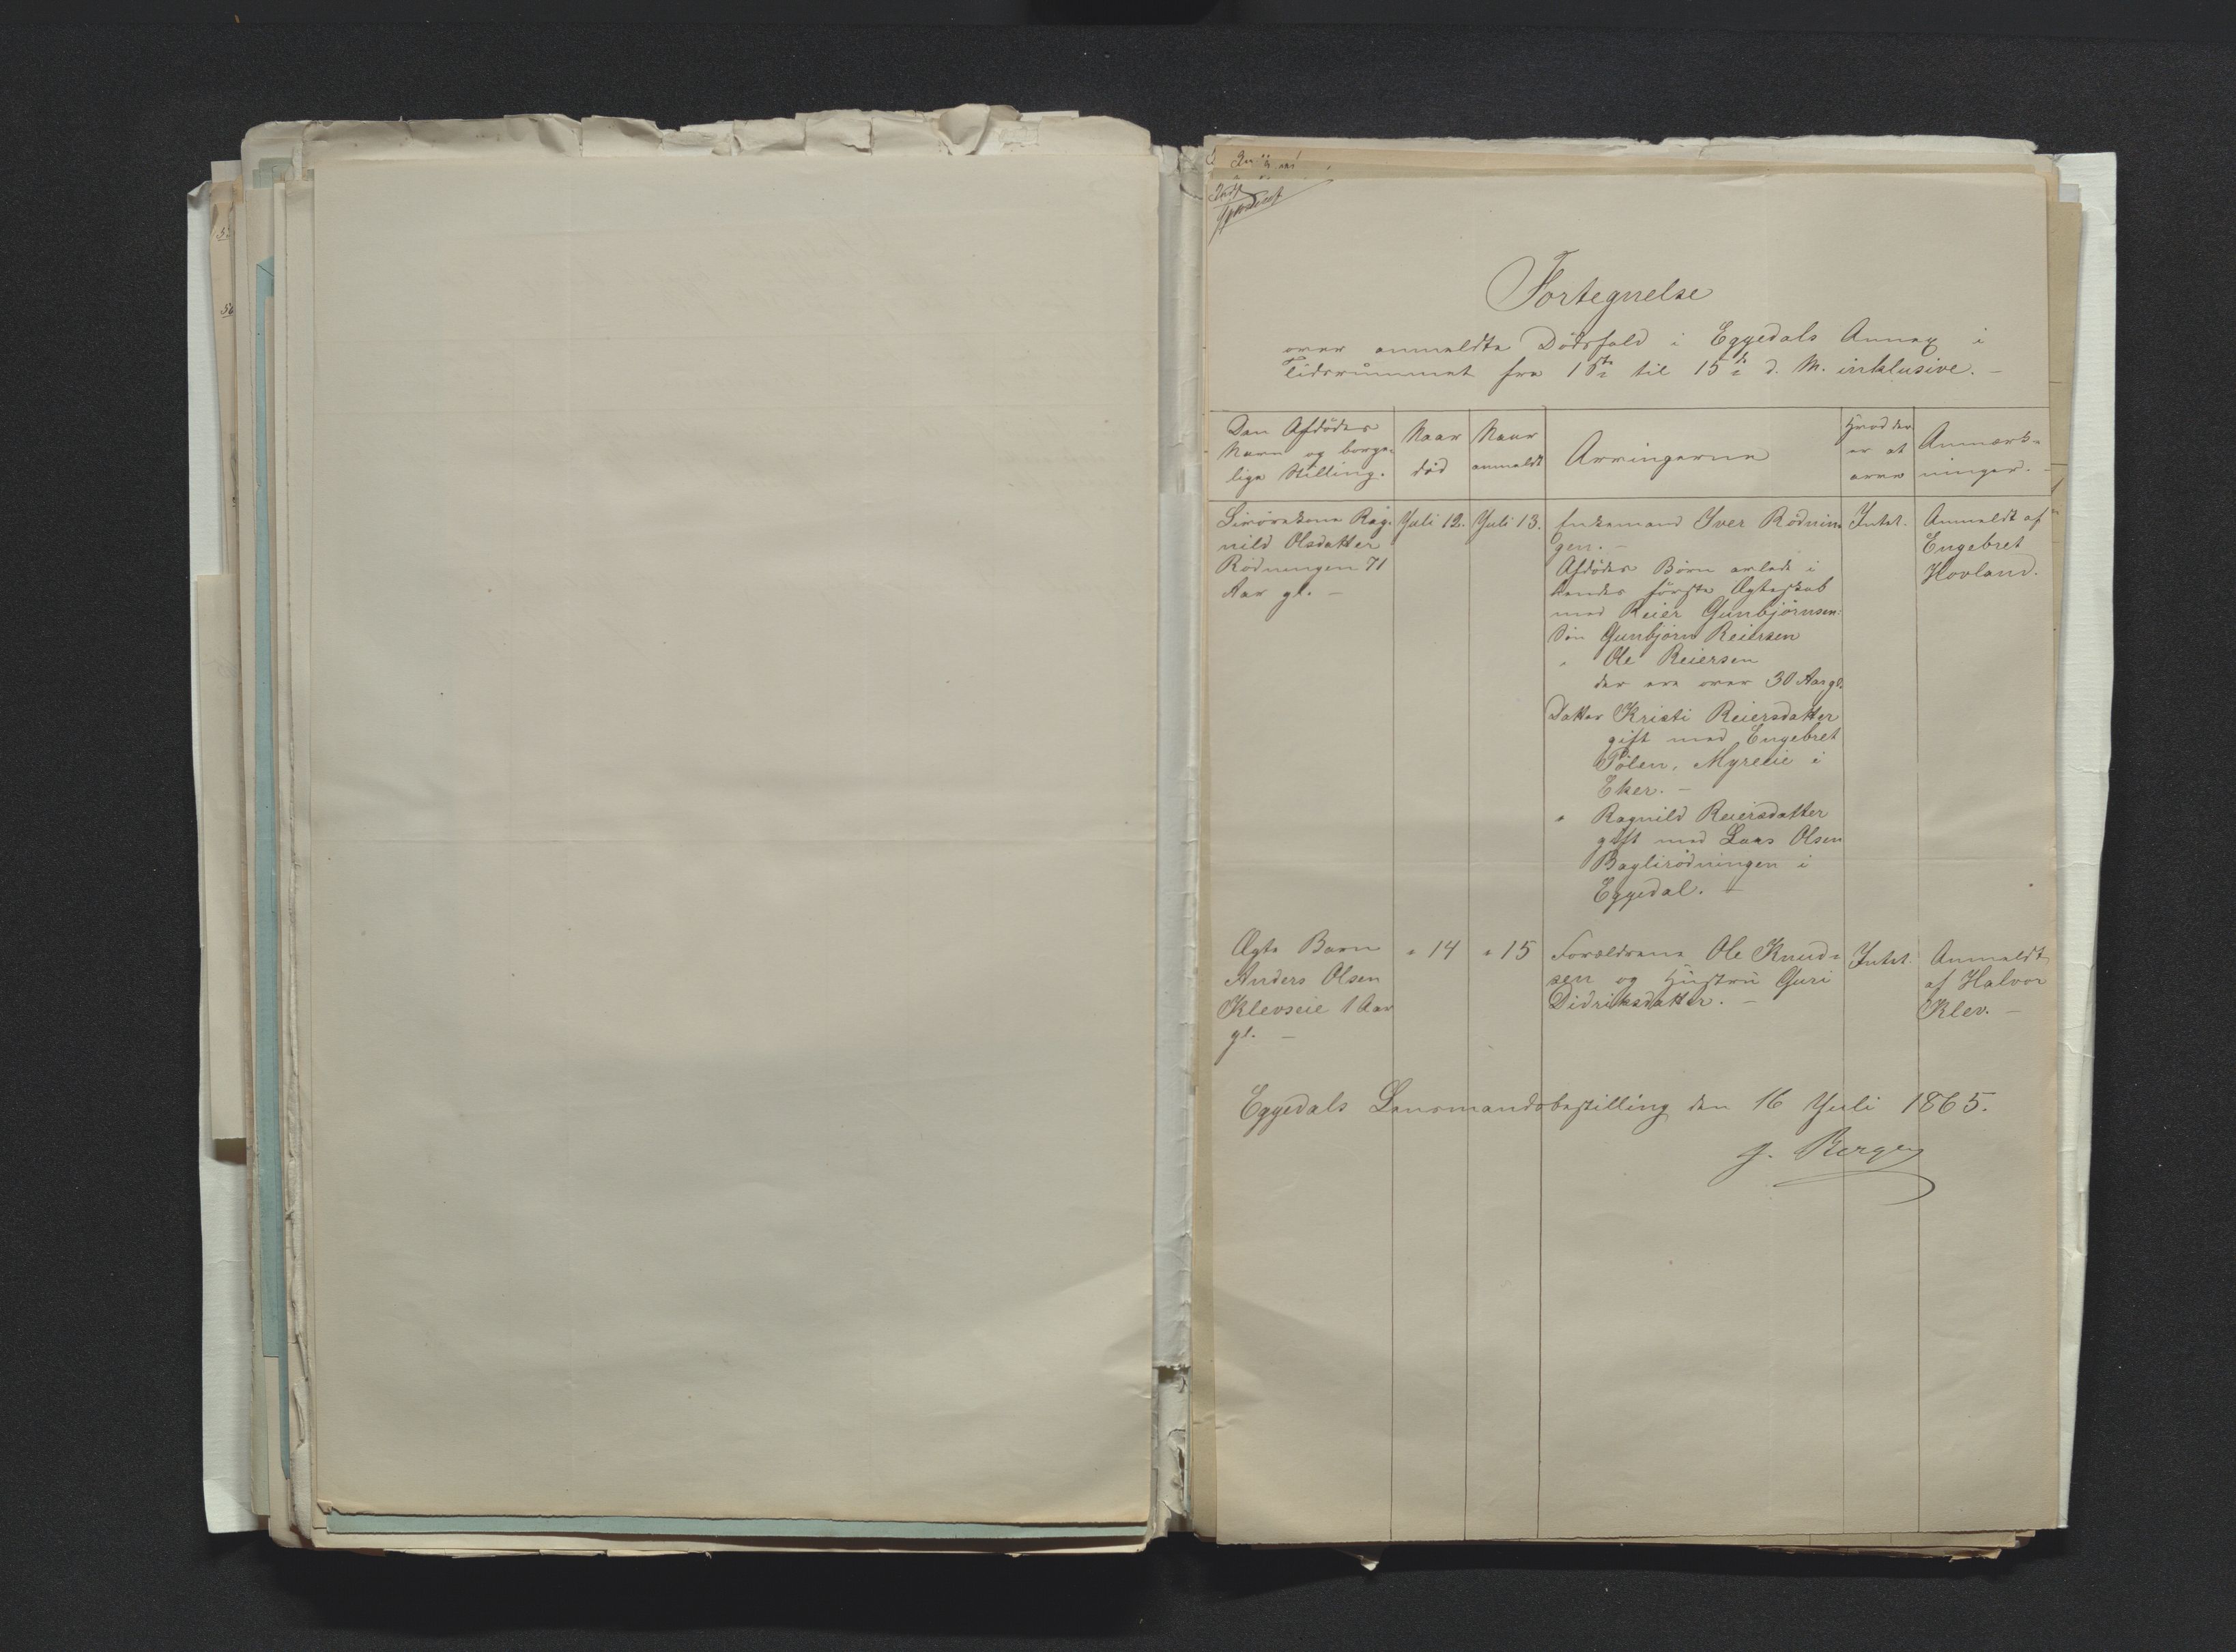 Fortegnelse
over anmeldte Dödsfald i Eggedals Annex i
Tidsrummet fra 1ste til 15de d. M. inklusive. –
Den Afdödes
Navn og borger-
lige Stilling.
Naar
död
Naar
anmeldt
Arvingerne
Hvad der
er at
arve
Anmærk-
ninger. –
Ragnild Olsdatter
Rödningen 71
Aar gl. –
Juli 12.
Juli 13.
Enkemand Iver Rödnin-
gen. –
Afdödes Børn avlede i
hendes første Ægteskab
med Reier Gunbjörnsen:
Sön Gunbjörn Reiersen
" Ole Reiersen
der ere over 30 Aar gl.
Datter Kristi Reiersdatter
gift med Engebret
Pölen, Myreeie i
Eker. –
" Ragnild Reiersdatter
gift med Lars Olsen
Baglirödningen i
Eggedal. –
Intet.
Anmeldt af
Engebret
Hovland.
Ægte Barn
Anders Olsen
Klevseie 1 Aar
gl. –
" 14
" 15
Forældrene Ole Knud-
sen og Hustru Guri
Didriksdatter. –
Intet.
Anmeldt
af Halvor
Klev. –
Eggedals Lensmandsbestilling den 16 Juli 1865.
J. Bergen